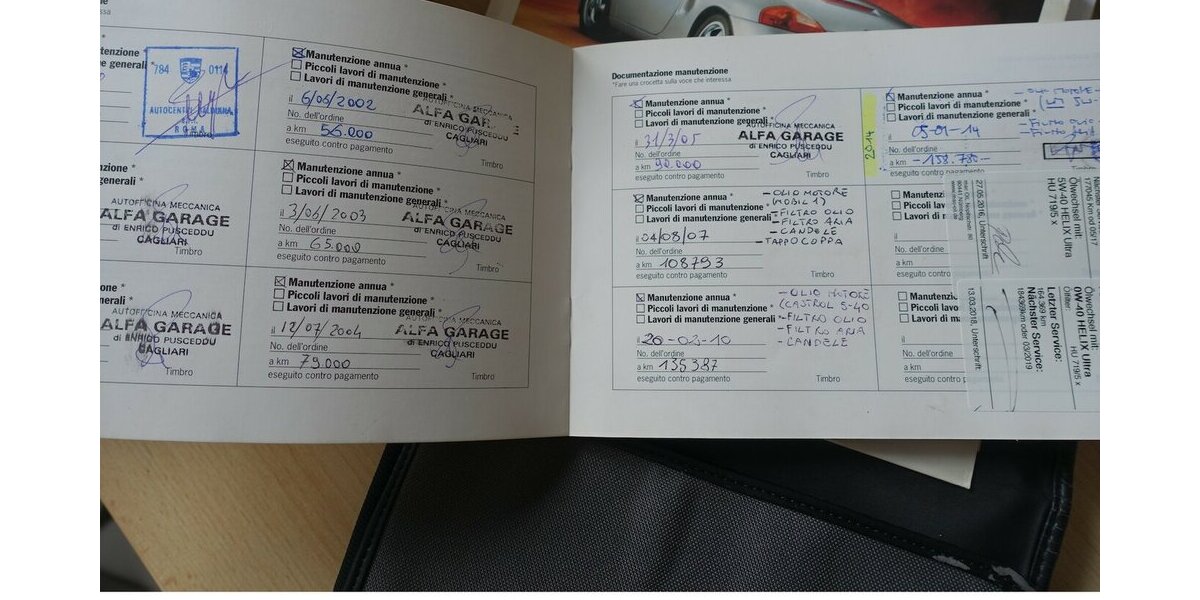 ssa
tenzione
generali *
784 0114
ROMA
Manutenzione annua *
Piccoli lavori di manutenzione *
Lavori di manutenzione generali *
il 6/06/2002
No. dell'ordine
a km 56.000
eseguito contro pagamento
AUTOFFICINA MECCANICA
ALFA GAR
di ENRICO PUSCEDDU
CAGLIARI
Timbro
zione
generali *
AUTOFFICINA MECCANICA
ALFA GARAGE
di ENRICO PUSCEDDU
CAGLIARI
Timbro
Manutenzione annua *
Piccoli lavori di manutenzione *
Lavori di manutenzione generali *
il 3/06/2003
No. dell'ordine
a km 65.000
eseguito contro pagamento
AUTOFFICINA MECCANICA
ALFA GARAGE
di ENRICO PUSCEDDU
CAGLIARI
Timbro
one *
nerali *
AUTOFFICINA MECCANICA
ALFA GARAGE
di ENRICO PUSCEDDU
CAGLIARI
Timbro
Manutenzione annua *
Piccoli lavori di manutenzione *
Lavori di manutenzione generali *
il 12/07/2004
No. dell'ordine
a km 79.000
eseguito contro pagamento
AUTOFFICINA MECCANICA
ALFA GARAGE
di ENRICO PUSCEDDU
CAGLIARI
Timbro
Documentazione manutenzione
*Fare una crocetta sulla voce che interessa
Manutenzione annua *
Piccoli lavori di manutenzione *
Lavori di manutenzione generali *
il 31/3/05
No. dell'ordine
a km 90.000
eseguito contro pagamento
AUTOFFICINA MECCANICA
ALFA GARAGE
di ENRICO PUSCEDDU
CAGLIARI
Timbro
2014
Manutenzione annua *
Piccoli lavori di manutenzione *
Lavori di manutenzione generali *
il 05-01-14
No. dell'ordine
a km -158.785-
eseguito contro pagamento
Timbro
- FILTRO OLIO
Manutenzione annua *
Piccoli lavori di manutenzione *
Lavori di manutenzione generali *
il 04/08/07
No. dell'ordine
a km 108793
eseguito contro pagamento
- OLIO MOTORE
(MOBIL 1)
- FILTRO OLIO
- FILTRO ARIA
- CANDELE
- TAPPO COPPA
Timbro
Manutenz
Piccoli lav
Lavori di m
il
No. dell'ordine
a km
eseguito contro pagamento
Manutenzione annua *
Piccoli lavori di manutenzione *
Lavori di manutenzione generali *
il 26-02-10
No. dell'ordine
a km 135387
eseguito contro pagamento
- OLIO MOTORE
(CASTROL 5-40
- FILTRO OLIO
- FILTRO ARIA
- CANDELE
Timbro
Manutenz
Piccoli lav
Lavori di m
il
No. dell'ordine
a km
eseguito contro p
Ölwechsel mit:
5W-40 HELIX Ultra
HU 719/5 x
27.05.2016, Unterschrift
Ölwechsel mit:
0W-40 HELIX Ultra
Ölfilter HU 719/5 x
Letzter Service:
164.369 km
Nächster Service:
184369km oder 03/2019
13.03.2018, Unterschrift